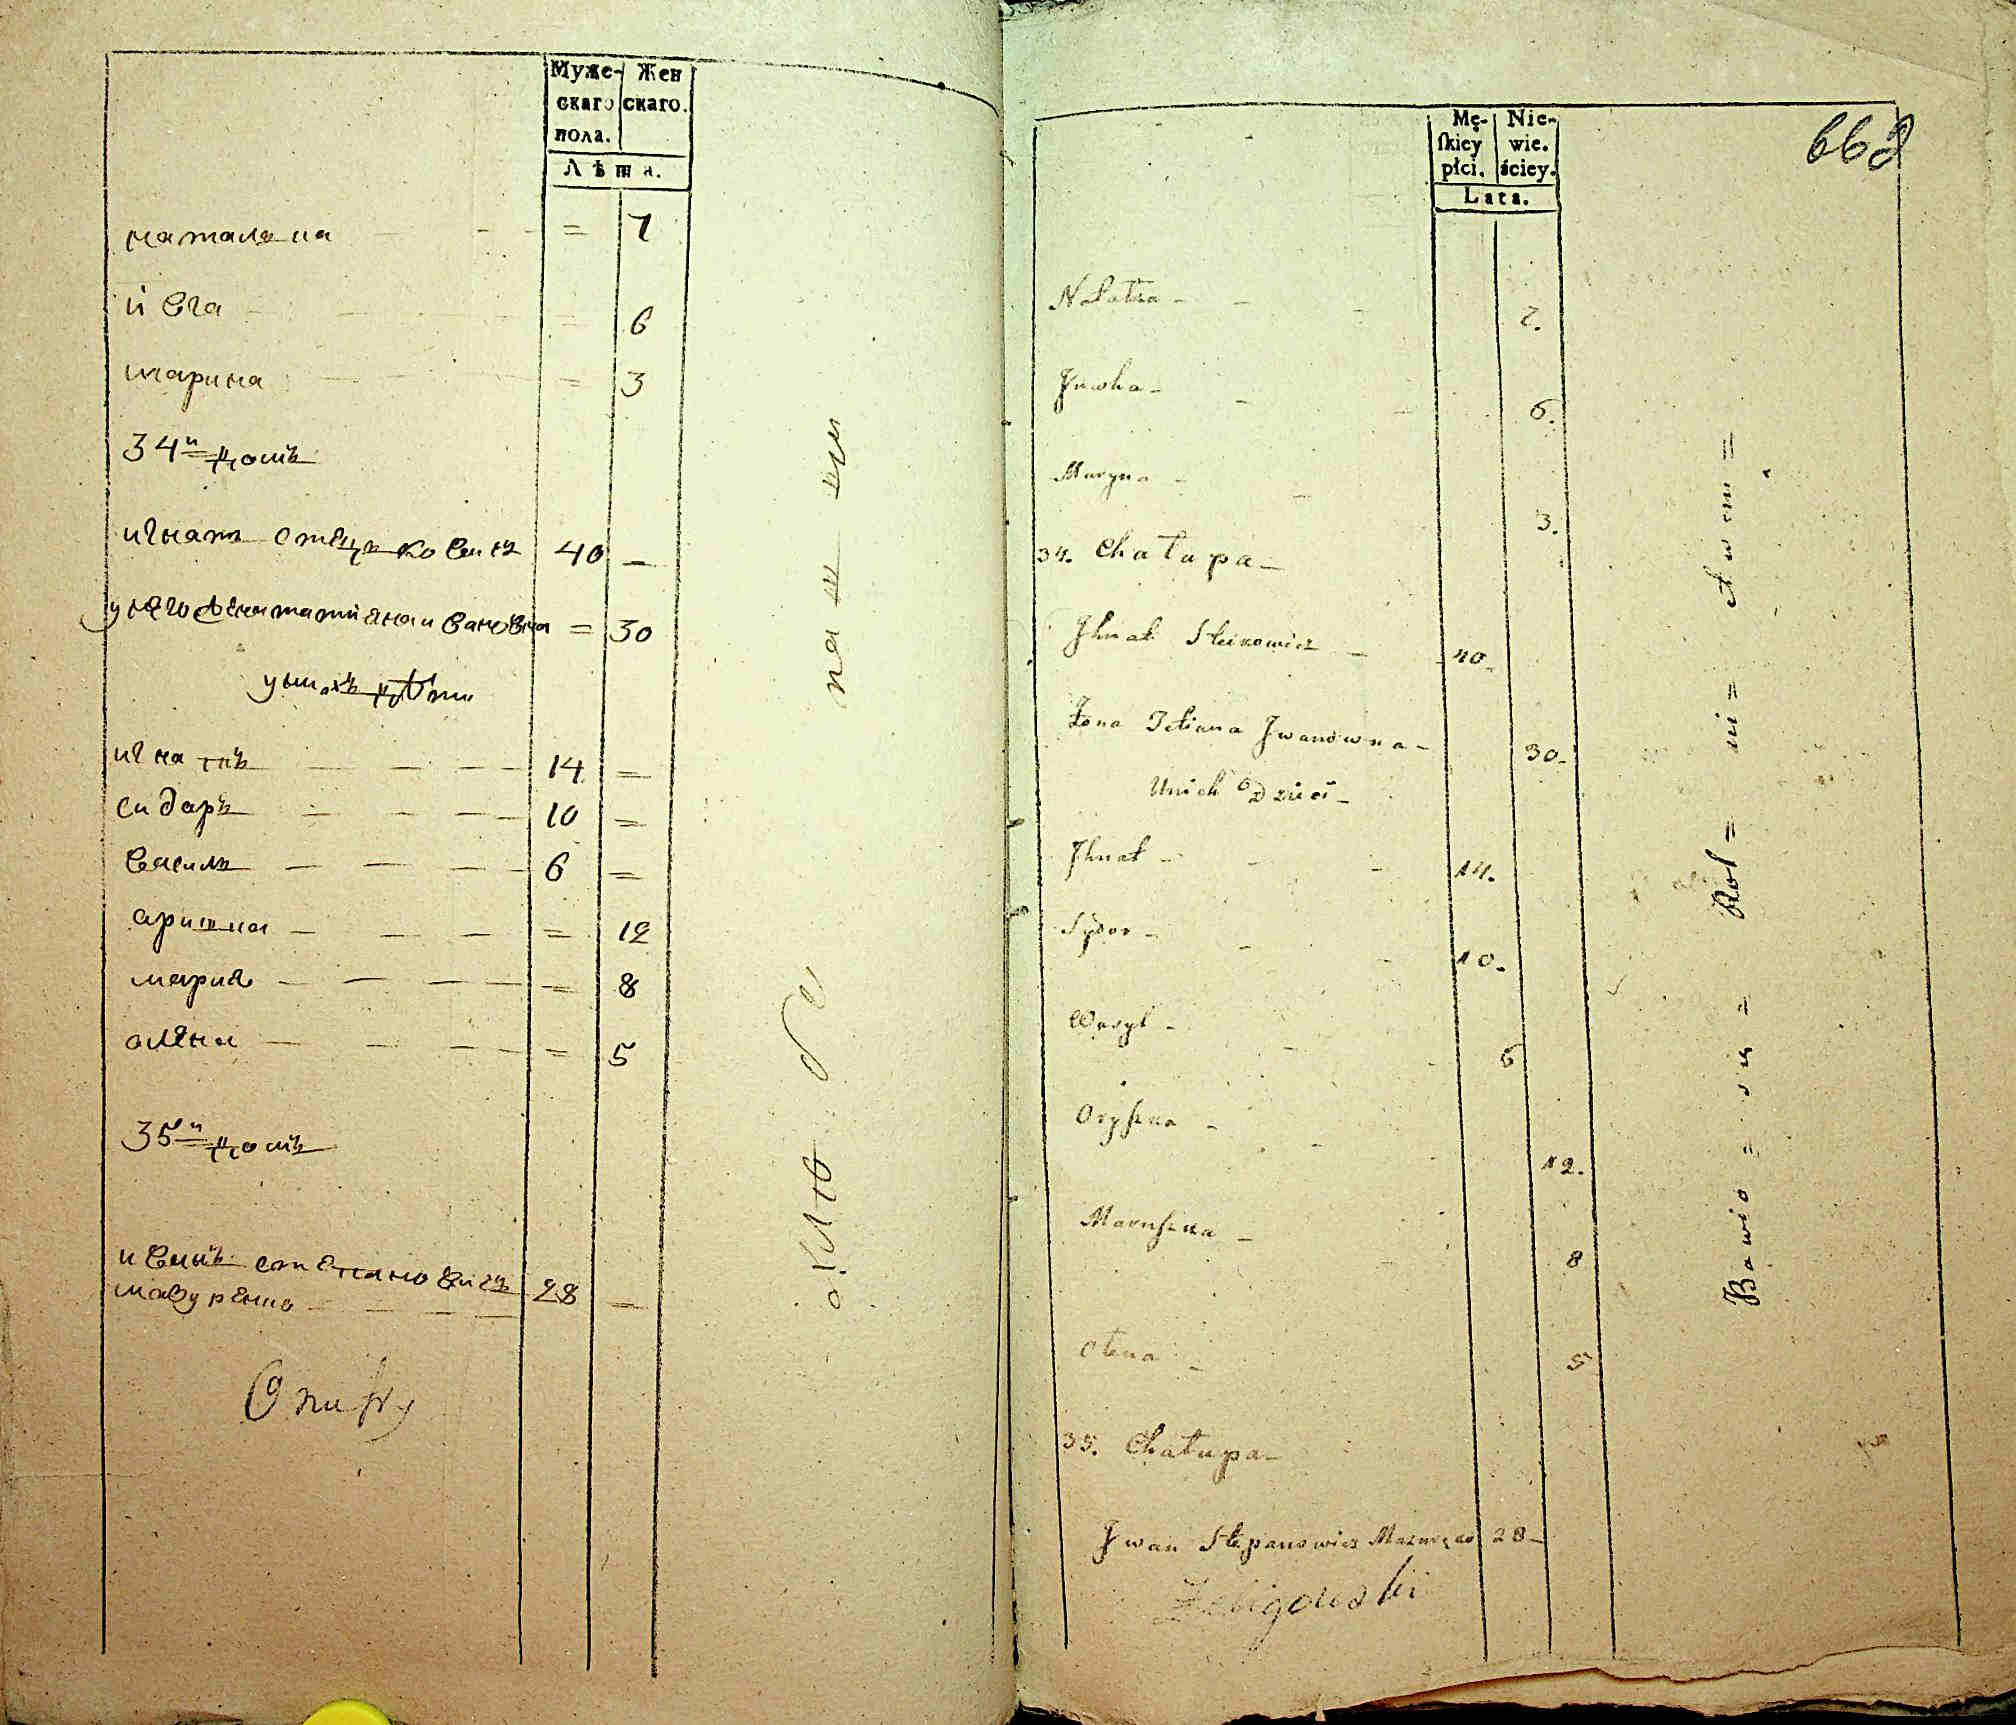 Муже-
скаго
пола.
Жен
скаго.
Лѣта.
наталя на = 7
и вга = 6
марина = 3
34й домъ
игнатъ стецковичъ 40 —
у него жена татияна ивановна = 30
у них дѣти
игнатъ 14 =
сидаръ 10 =
василь 6 =
аришна = 12
мария = 8
алена = 5
35й домъ
иванъ степановичъ 28 —
мазуренко
пашни
668
Mę-
skiey
płci.
Nie-
wie.
ściey.
Lata.
Natałka 7.
Jewha 6.
Maryna 3.
34. Chałupa
Jhnat Steckowicz 40.
Żona Tetiana Jwanowna 30.
U nich Dzieci
Jhnat 14.
Sydor 10.
Wasyl 6
Oryszka 12.
Maruszka 8
Ołena 5
35. Chałupa
Jwan Stepanowicz Mazurenko 28
Bawią = się = Rol = ni = ctwem =